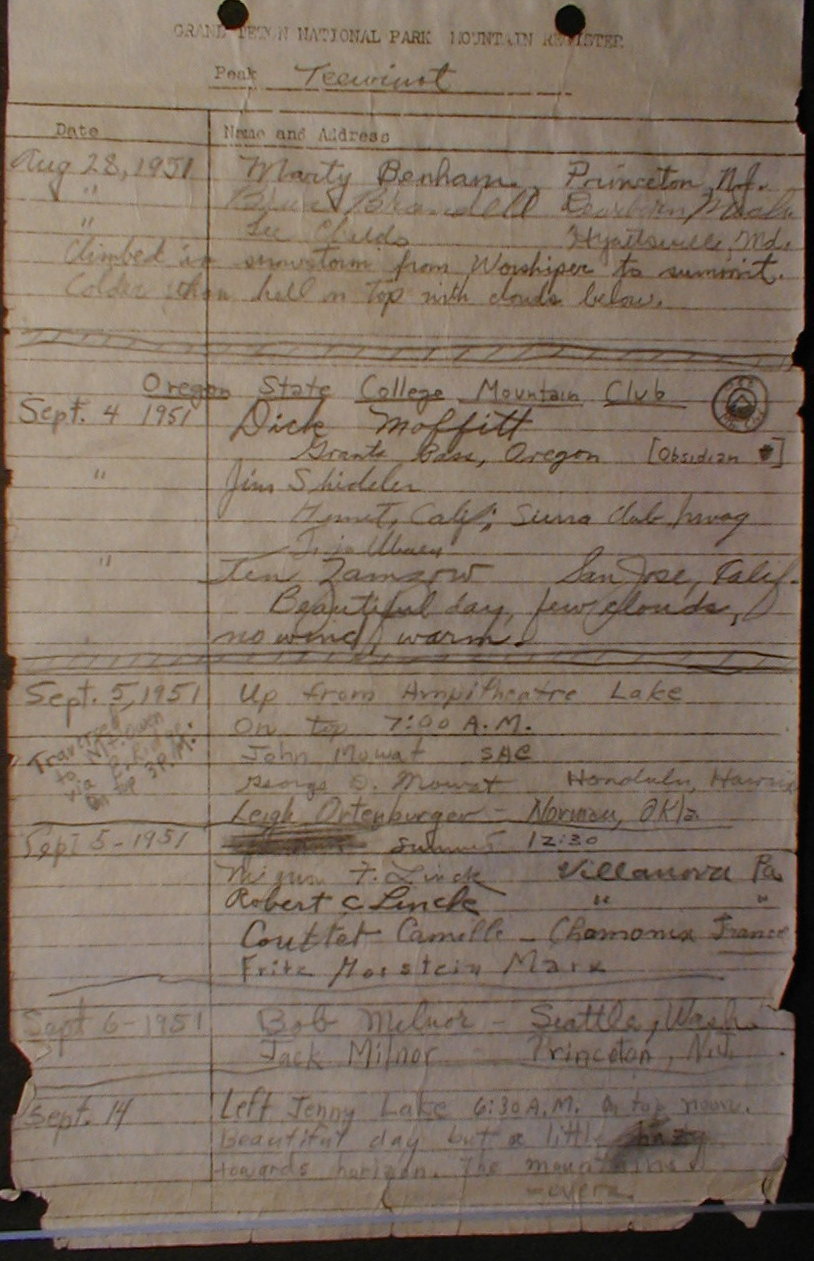 GRAND TETON NATIONAL PARK MOUNTAIN REGISTER
Peak Teewinot
Date Name and Address
Aug 28, 1951 Marty Benham, Princeton, N.J.
" Brandell Dearborn, Mich
" Lee Childs Hyattsville, Md.
Climbed in snowstorm from Worshiper to summit.
Colder than hell on top with clouds below.
Oregon State College Mountain Club
Sept. 4 1951 Dick Moffitt
Grants Pass, Oregon [Obsidian]
" Jim Shideler
Hemet, Calif; Sierra Club
" Zamzow San Jose, Calif.
Beautiful day, few clouds,
no wind, warm.
Sept. 5, 1951 Up from Ampitheatre Lake
On top 7:00 A.M.
Traversed to Mt. Owen via E. Ridge On top 3 P.M.
John Mowat SAC
George D. Mowat Honolulu, Hawaii
Leigh Ortenburger - Norman, Okla.
Sept 5 - 1951 summit 12:30
F. Linck Villanova Pa
Robert C Linck " "
Couttet Camille - Chamonix France
Fritz Marx
Sept 6 - 1951 Bob Milnor - Seattle, Wash.
Jack Milnor Princeton, N.J.
Sept. 14 Left Jenny Lake 6:30 A.M. On top noon.
Beautiful day but a little hazy
towards horizon. The mountains